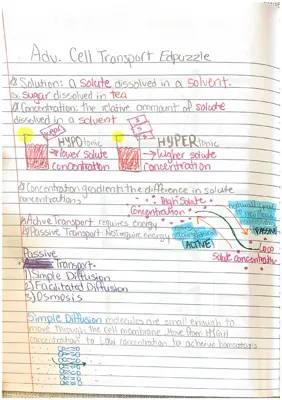 Adv. Cell Transport Edpuzzle
Solution: a solute dissolved in a solvent.
ex. sugar dissolved in tea
Concentration: the relative ammount of solute
dissolved in a solvent
HYPOtonic
→lower solute
concentration
HYPERtonic
→higher solute
concentration
Concentration gradient: the difference in solute
concentrations
High Solute
Concentration
Active transport requires energy
Passive Transport: Not require energy
ACTIVE
PASSIVE
Low
Solute concentration
Passive
Transport:
1) Simple Diffusion
2) Facilitated Diffusion
3) Osmosis
Simple Diffusion: molecules are small enough to
move through the cell membrane. Move from High
concentration to Low concentration to achieve homeostasis